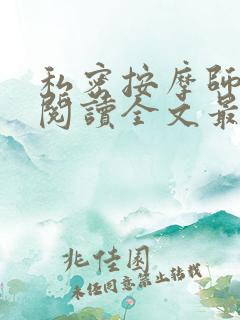 私密按摩師
閱讀全文最
兆佳園
未经同意禁止转载